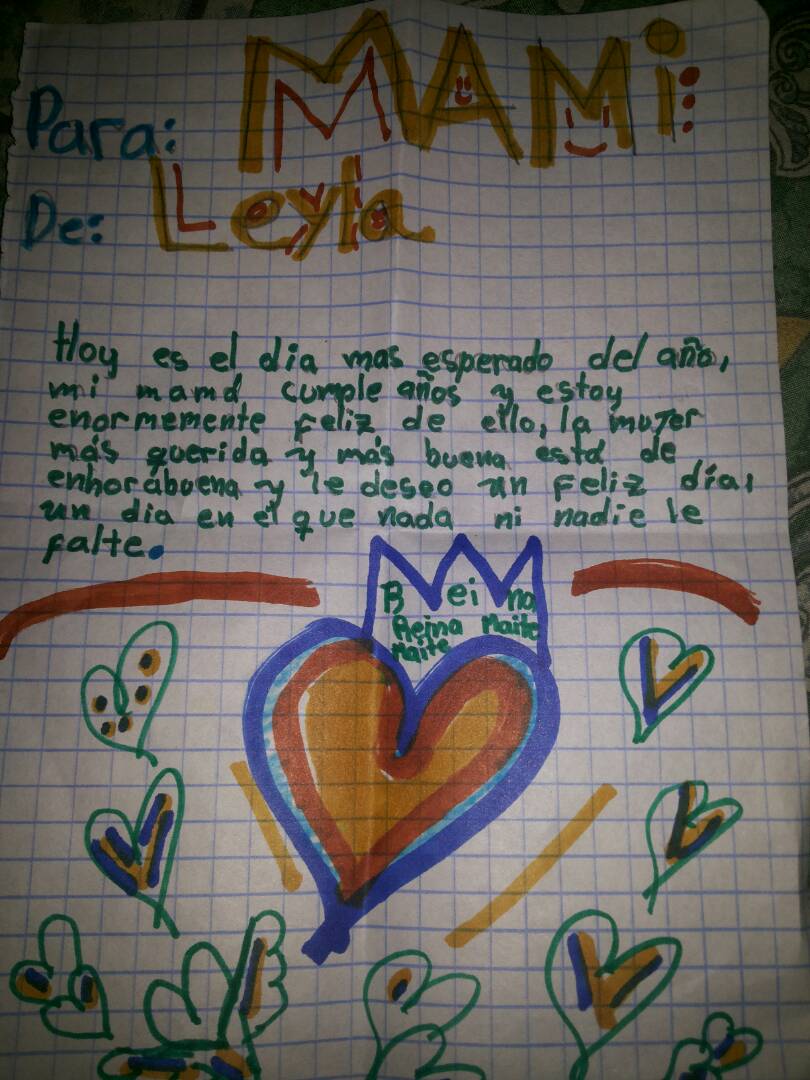 Para: MAMi
De: Leyla
Hoy es el dia mas esperado del año,
mi mamá cumple años y estoy
enormemente feliz de ello, la mujer
más querida y más buena está de
enhorabuena y le deseo un feliz día,
un dia en el que nada ni nadie le
falte.
Reina
Reina Maite
Maite